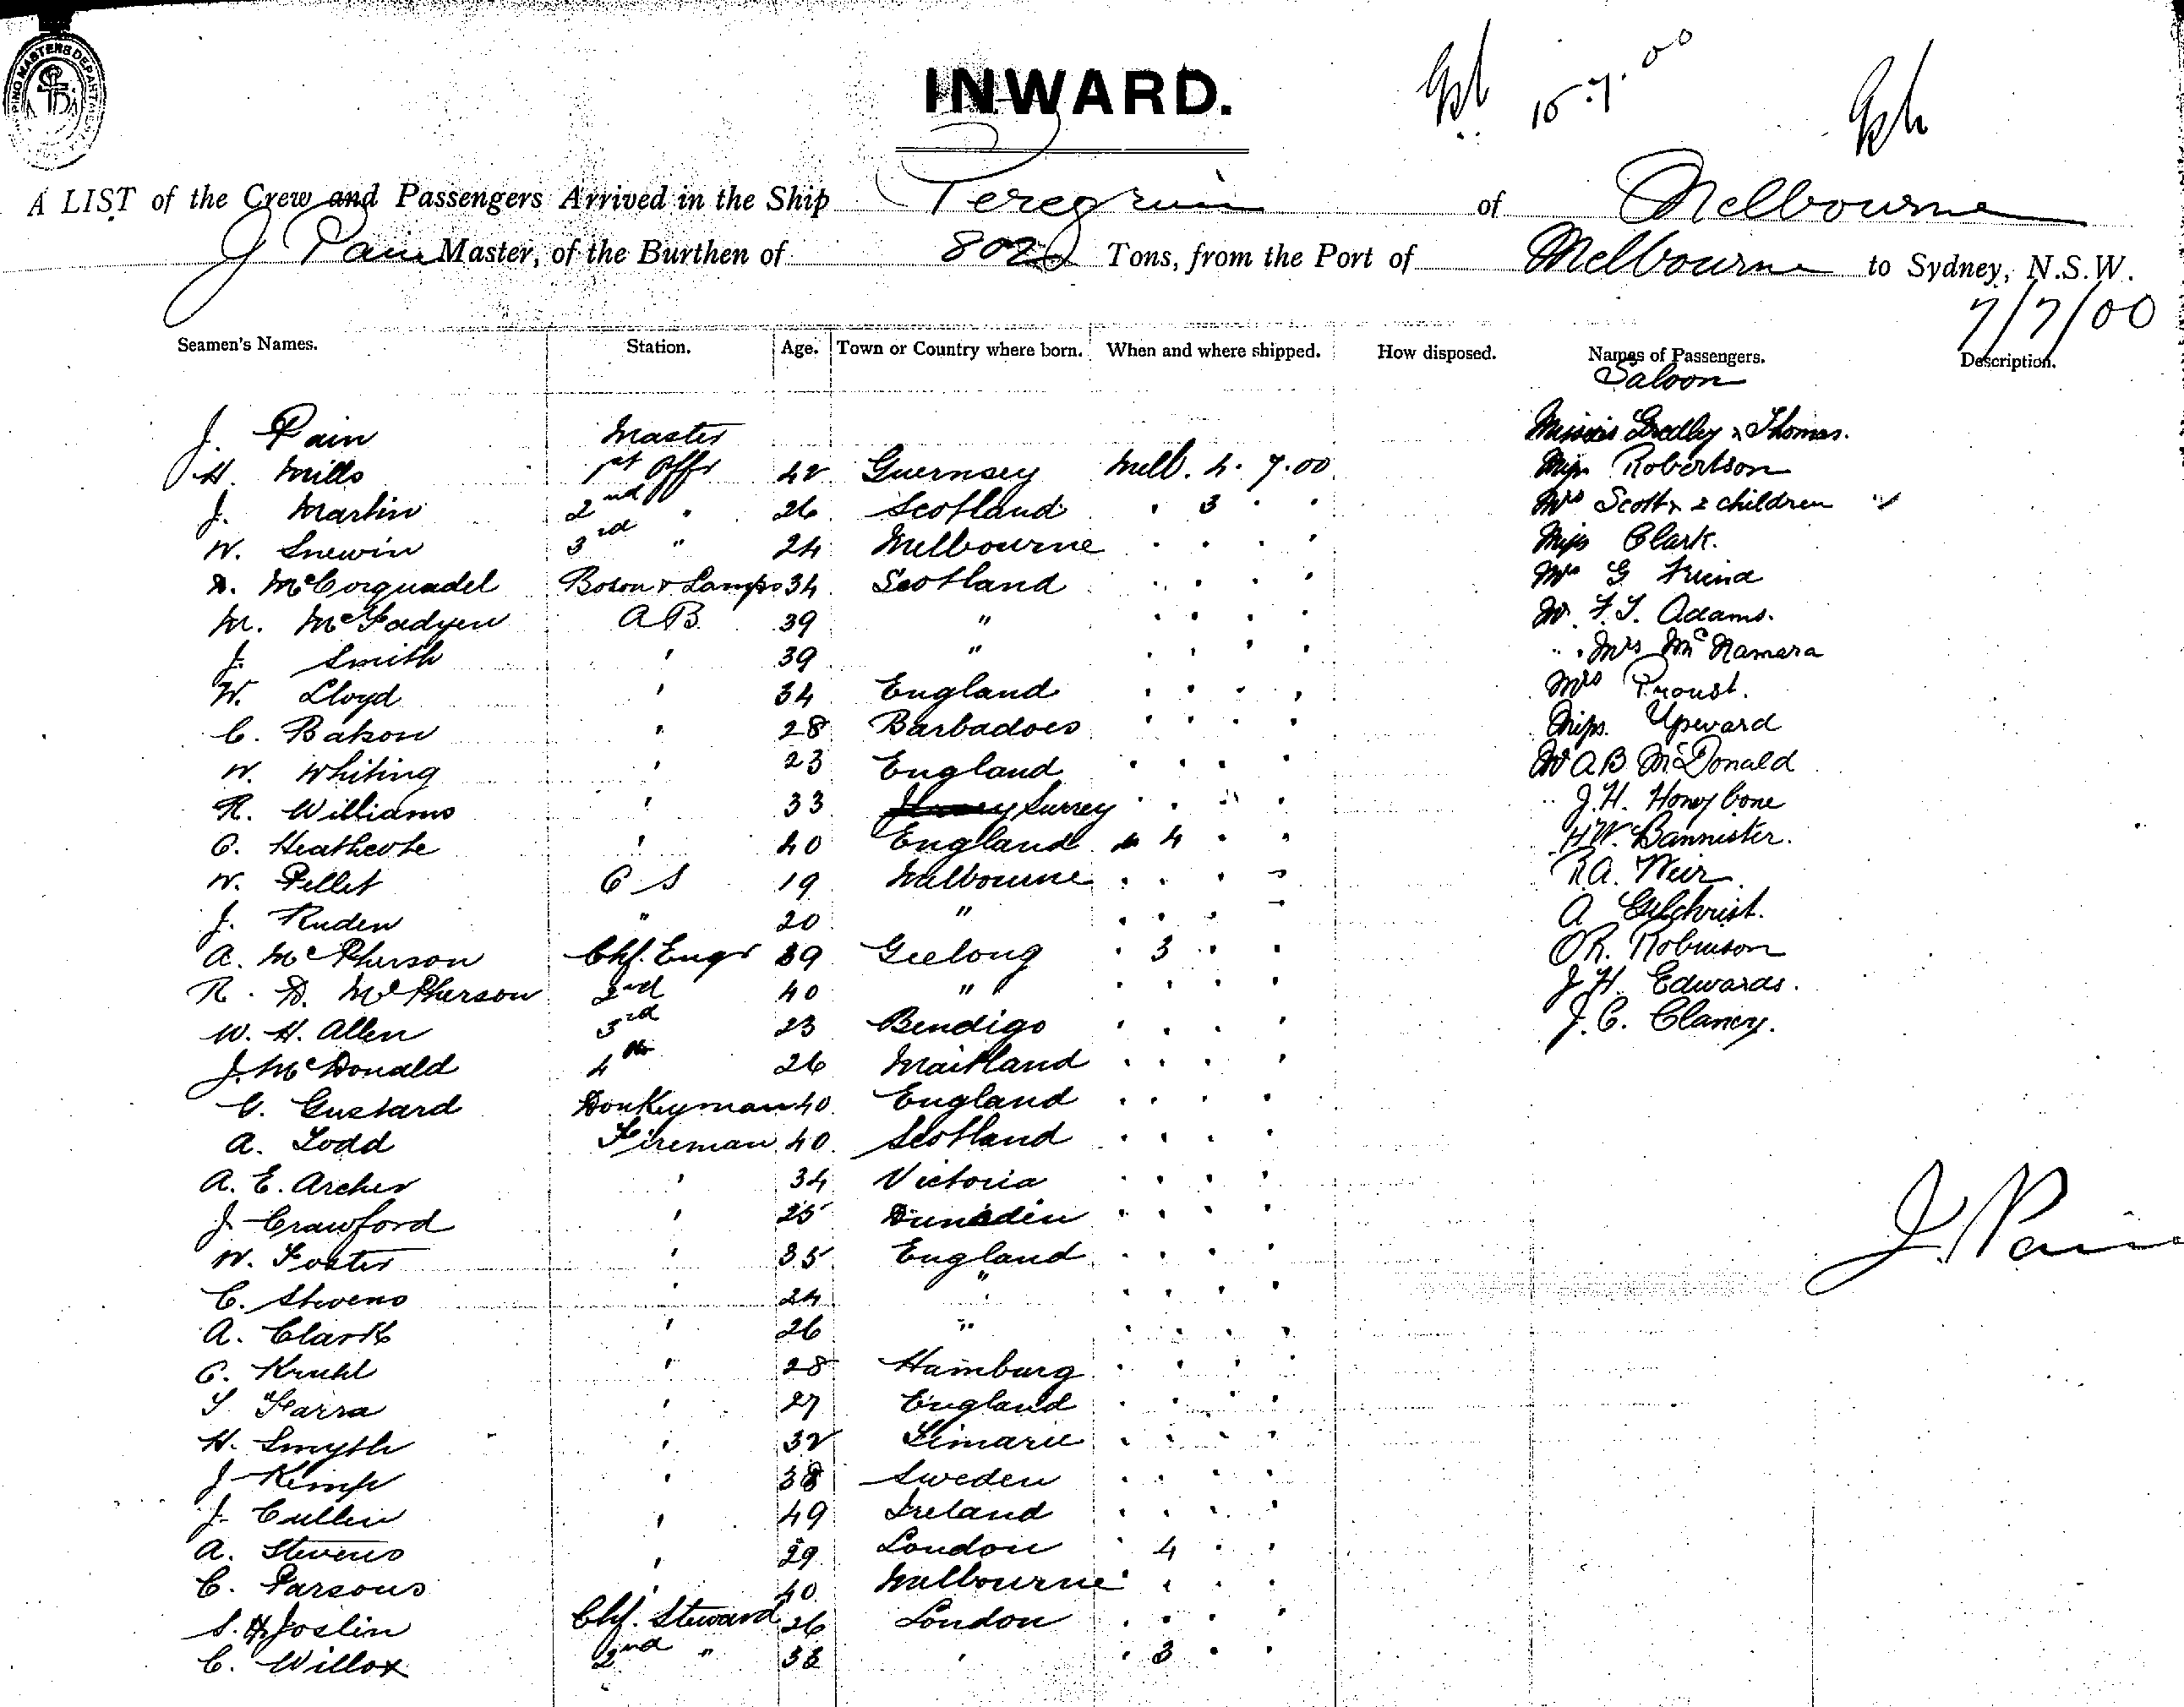 INWARD.
15.7.00
A LIST of the Crew and Passengers Arrived in the Ship Peregrine of Melbourne
J Pain Master, of the Burthen of 802 Tons, from the Port of Melbourne to Sydney, N.S.W.
7/7/00
Seamen's Names. Station. Age. Town or Country where born. When and where shipped. How disposed. Names of Passengers. Description.
Saloon
J. Pain Master Misses Gredley & Thomas.
H. Mills 1st Offr 42 Guernsey Melb. 4. 7.00 Miss Robertson
J. Martin 2nd " 26 Scotland . 3 . . Mrs Scott & 2 children
W. Snewin 3rd " 24 Melbourne . . . . Miss Clark.
D. McCorquadel Bosun & Lamps 34 Scotland . . . . Mrs G Friend
M. McFadyen A B. 39 " . . . . Mr. F. J. Adams.
J. Smith ' 39 " . . . . " Mrs McNamara
W. Lloyd ' 34 England . . . . Mrs Proust.
C. Bakon ' 28 Barbadoes . . . . Miss. Upward
W. Whiting ' 23 England . . . . Mr A B McDonald
R. Williams ' 33 Surrey . . . . " J. H. Honeybone
C. Heathcote ' 40 England . 4 . . H W. Bannister.
W. Pellet O S 19 Melbourne . . . . R A. Weir
J. Ruden " 20 " . . . . A Gilchrist.
A. McPherson Chf. Engr 39 Geelong . 3 . . O R. Robinson
R. D. McPherson 2nd 40 " . . . . J H. Edwards.
W. H. Allen 3rd 23 Bendigo . . . . J. C. Clancy.
J. McDonald 4th 26 Maitland . . . .
G. Gustard Donkeyman 40 England . . . .
A. Todd Fireman 40 Scotland . . . .
A. E. Archer ' 34 Victoria . . . .
J Crawford ' 25 Dunedin . . . .
J. Pain
W. Foster ' 35 England . . . .
C. Stevens ' 24 " . . . .
A. Clark ' 26 " . . . .
C. Kruhl ' 28 Hamburg . . . .
S Farra ' 27 England . . . .
H. Smyth ' 32 . . . .
J Kemp ' 38 Sweden . . . .
J. Cullen ' 49 Ireland . . . .
A. Stevens ' 29 London . 4 . .
C. Parsons ' 40 Melbourne . . . .
S. H. Joslin Chf. Steward 26 London . . . .
C. Willox 2nd " 33 ' . 3 . .